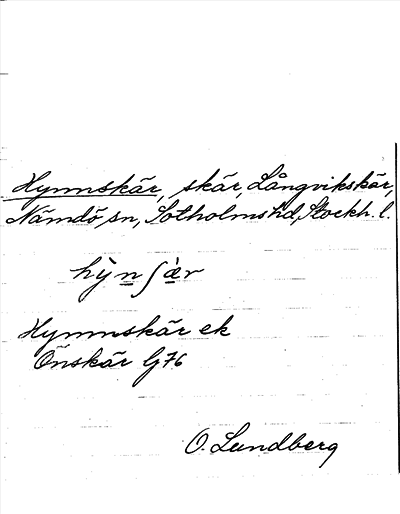 Hymnskär, skär, Långvikskär,
Nämdö sn, Sotholms hd, Stockh. l.
hỳn ʃæ̀r
Hymnskär ek
Önskär G76
O. Lundberg